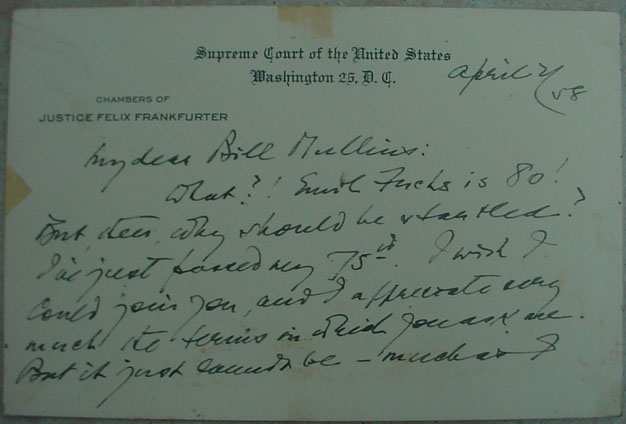 Supreme Court of the United States
Washington 25, D. C.
April 2/58
CHAMBERS OF
JUSTICE FELIX FRANKFURTER
My dear Bill Mullins:
What?! Emil Fuchs is 80!
But, then, why should I be startled?
I've just passed my 75th. I wish I
could join you, and I appreciate very
much the terms in which you ask me.
But it just cannot be – much as I